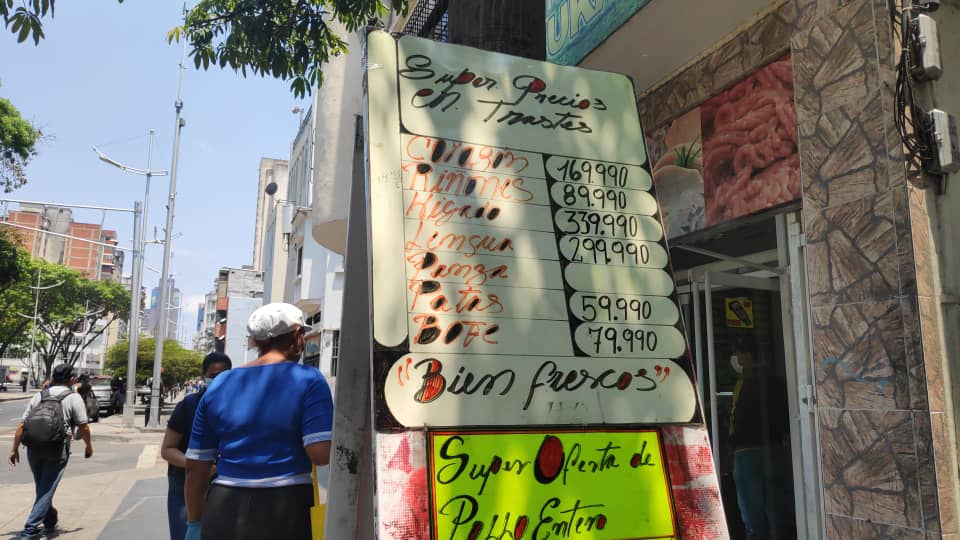 Super Precios
en. Trastes
Corazón 169.990
Riñones 89.990
Higado 339.990
Lengua 299.990
Panza
Patas 59.990
BOFE 79.990
"Bien frescos"
Super Oferta de
Pollo Entero